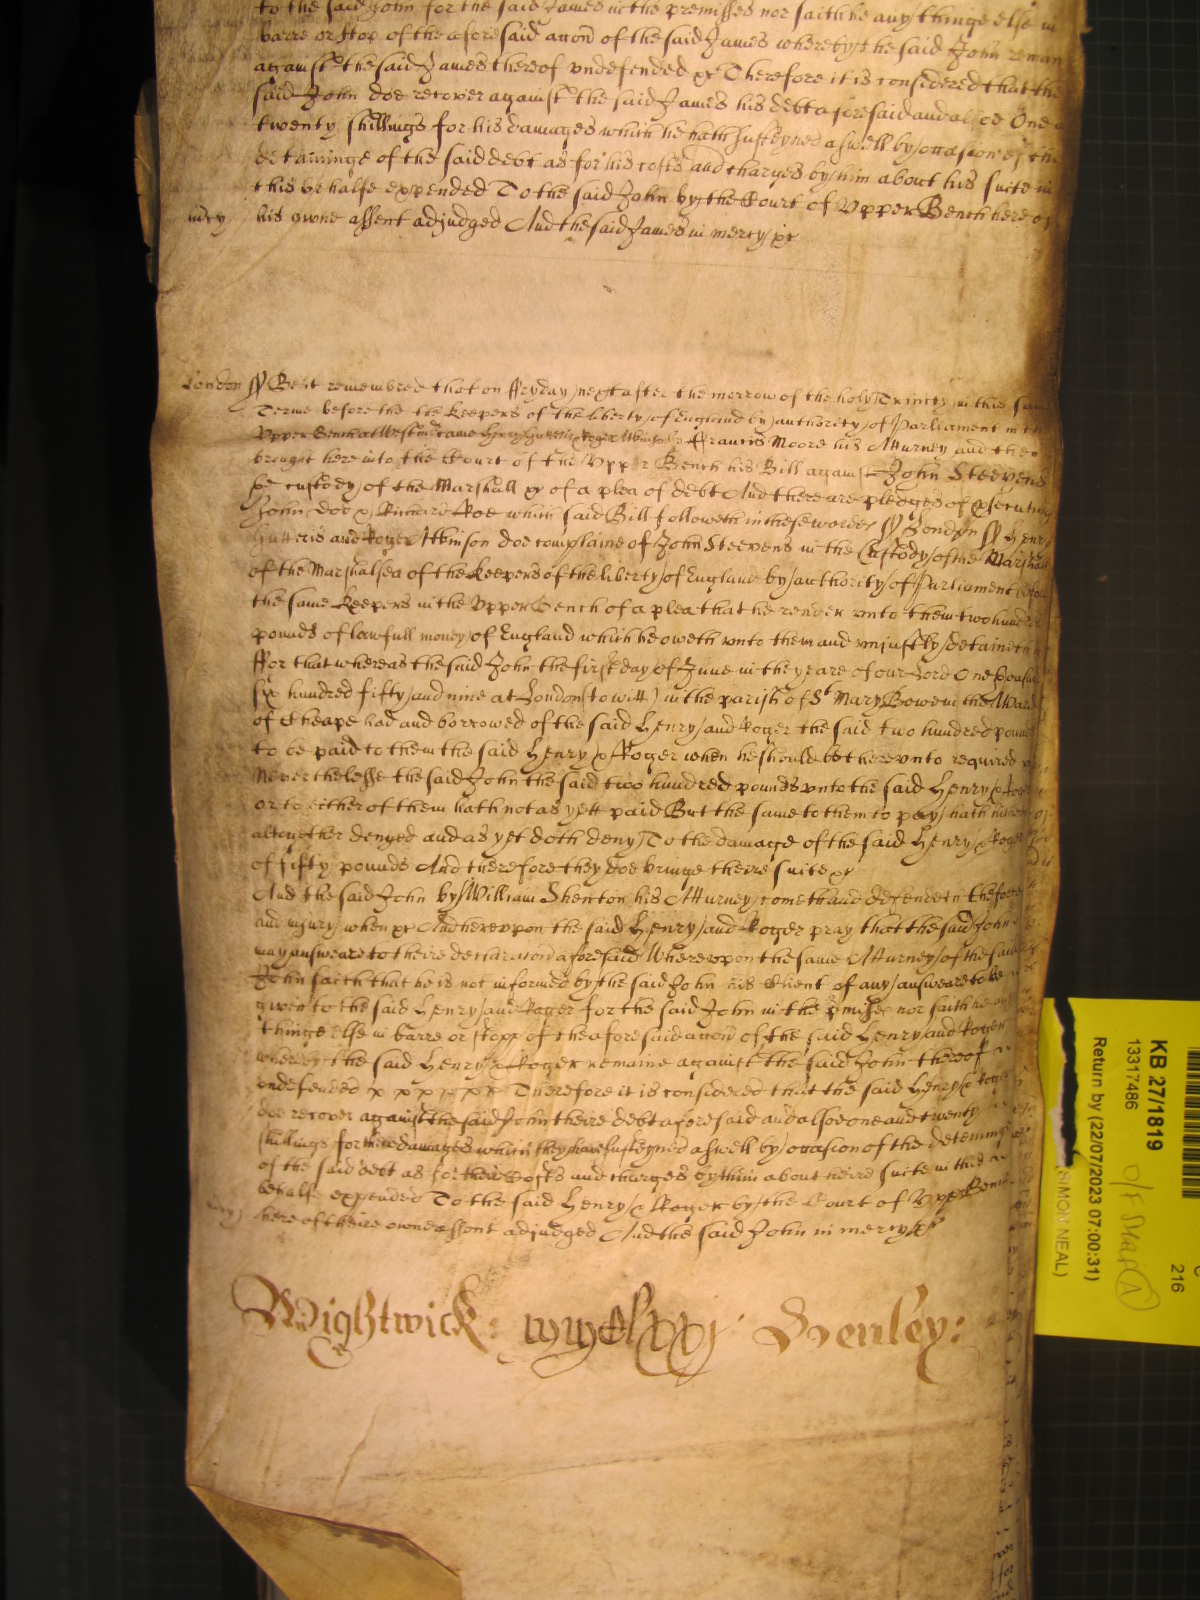 to the said John for the said James in the premisses nor saith he any thinge else in
barre or stop of the aforesaid accon of the said James whereby the said John reman
against the said James thereof undefended &c Therefore it is considered that the
said John doe recover against the said James his debt aforesaid and alsoe One
twenty shillings for his damages which he hath susteyned aswell by occasion of the
detaininge of the said debt as for his costs and charges by him about his suite in
this behalfe expended To the said John by the Court of Upper Bench here of
mercy his owne assent adjudged And the said James in mercy &c
London ss Be it remembred that on ffryday next after the morrow of the holy Trinity in this same
Terme before the Keepers of the liberty of England by authority of Parliament in the
Upper Bench at Westm came Henry Roger Francis Moore his Atturney and then
brought here into the Court of the Upper Bench his Bill against John Steevens
&c custody of the Marshall &c of a plea of debt And there are pledges of
John Doe & Richard Roe which said Bill followeth in these wordes ss London ss Henry
Hutteris and Roger Atkinson doe complaine of John Steevens in the Custody of the Marshall
of the Marshalsea of the Keepers of the liberty of England by authority of Parliament before
the same Keepers in the Upper Bench of a plea that he render unto them two hundred
pounds of lawfull money of England which he oweth unto them and unjustly detaineth
ffor that whereas the said John the first day of June in the yeare of our Lord One thousand
six hundred fifty and nine at London (to witt) in the parish of St Mary Bowe in the Ward
of Cheape had and borrowed of the said Henry and Roger the said two hundred pounds
to be paid to them the said Henry & Roger when he should bee thereunto required
Neverthelesse the said John the said two hundred pounds unto the said Henry & Roger
or to either of them hath not as yett paid But the same to them to pay hath hitherto
altogether denyed and as yet doth deny To the damage of the said Henry & Roger
of fifty pounds And therefore they doe bringe theire suite &c
And the said John by William Shenton his Atturney cometh and defendeth the force
and injury when &c And hereupon the said Henry and Roger pray that the said John
may answeare to theire declaracon aforesaid Whereupon the same Atturney of the said
John saith that he is not informed by the said John his Client of any answeare to be
given to the said Henry and Roger for the said John in the pmisses nor saith he any
thinge else in barre or stopp of the aforesaid accon of the said Henry and Roger
whereby the said Henry & Roger remaine against the said John thereof
undefended x x x x x x Therefore it is considered that the said Henry & Roger
doe recover against the said John theire debt aforesaid and alsoe one and twenty
shillings for theire damages which they have susteyned aswell by occasion of the deteining
of the said debt as for theire Costs and charges by them about theire suite in this
behalfe expended To the said Henry & Roger by the Court of Upper Bench
mercy here of theire owne assent adjudged And the said John in mercy &c
Wightwick: Henley:
KB 27/1819
13317486
Return by (22/07/2023 07:00:31)
(SIMON NEAL)
216
A